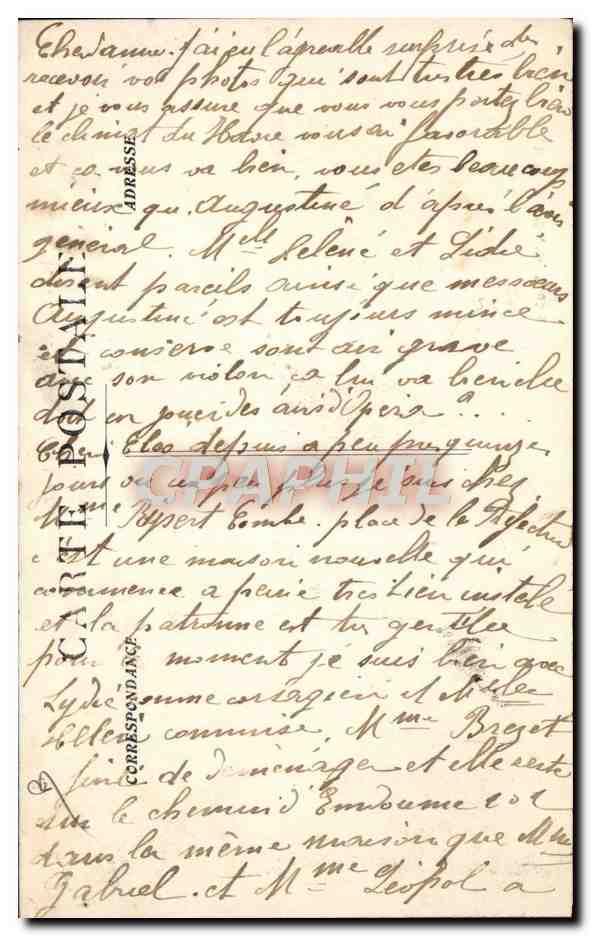 Cher Jeanne. J'ai eu l'agréable surprise de
recevoir vos photos qui sont très très bien
et je vous assure que vous vous portez bien
le climat du Havre vous ai favorable
et ça vous va bien, vous etes beaucoup
mieux qu. Augustine d'après l'avis
général. Mlle Hélène et Lidie
disent pareils ainsi que mes sœurs
Augustine est toujours mince
et conserve son air grave
avec son violon, ça lui va bien
doit en jouer des airs d'Opéra ? ...
depuis a peu pres quinze
jours ou un peu plus je suis chez
Mme place de la Préfecture
c est une maison nouvelle qui
commence a peine très bien instalé
et la patronne est très gentille
pour moment je suis bien avec
Lydie comme corsagière et Mlle
Hélène commise, Mme Brezet
finit de déménager et elle reste
sur le chemin d'Endoume 202
dans la même maison que Mme
Gabriel. et Mme Léopol a
CARTE POSTALE
CORRESPONDANCE
ADRESSE
CPAPHIL